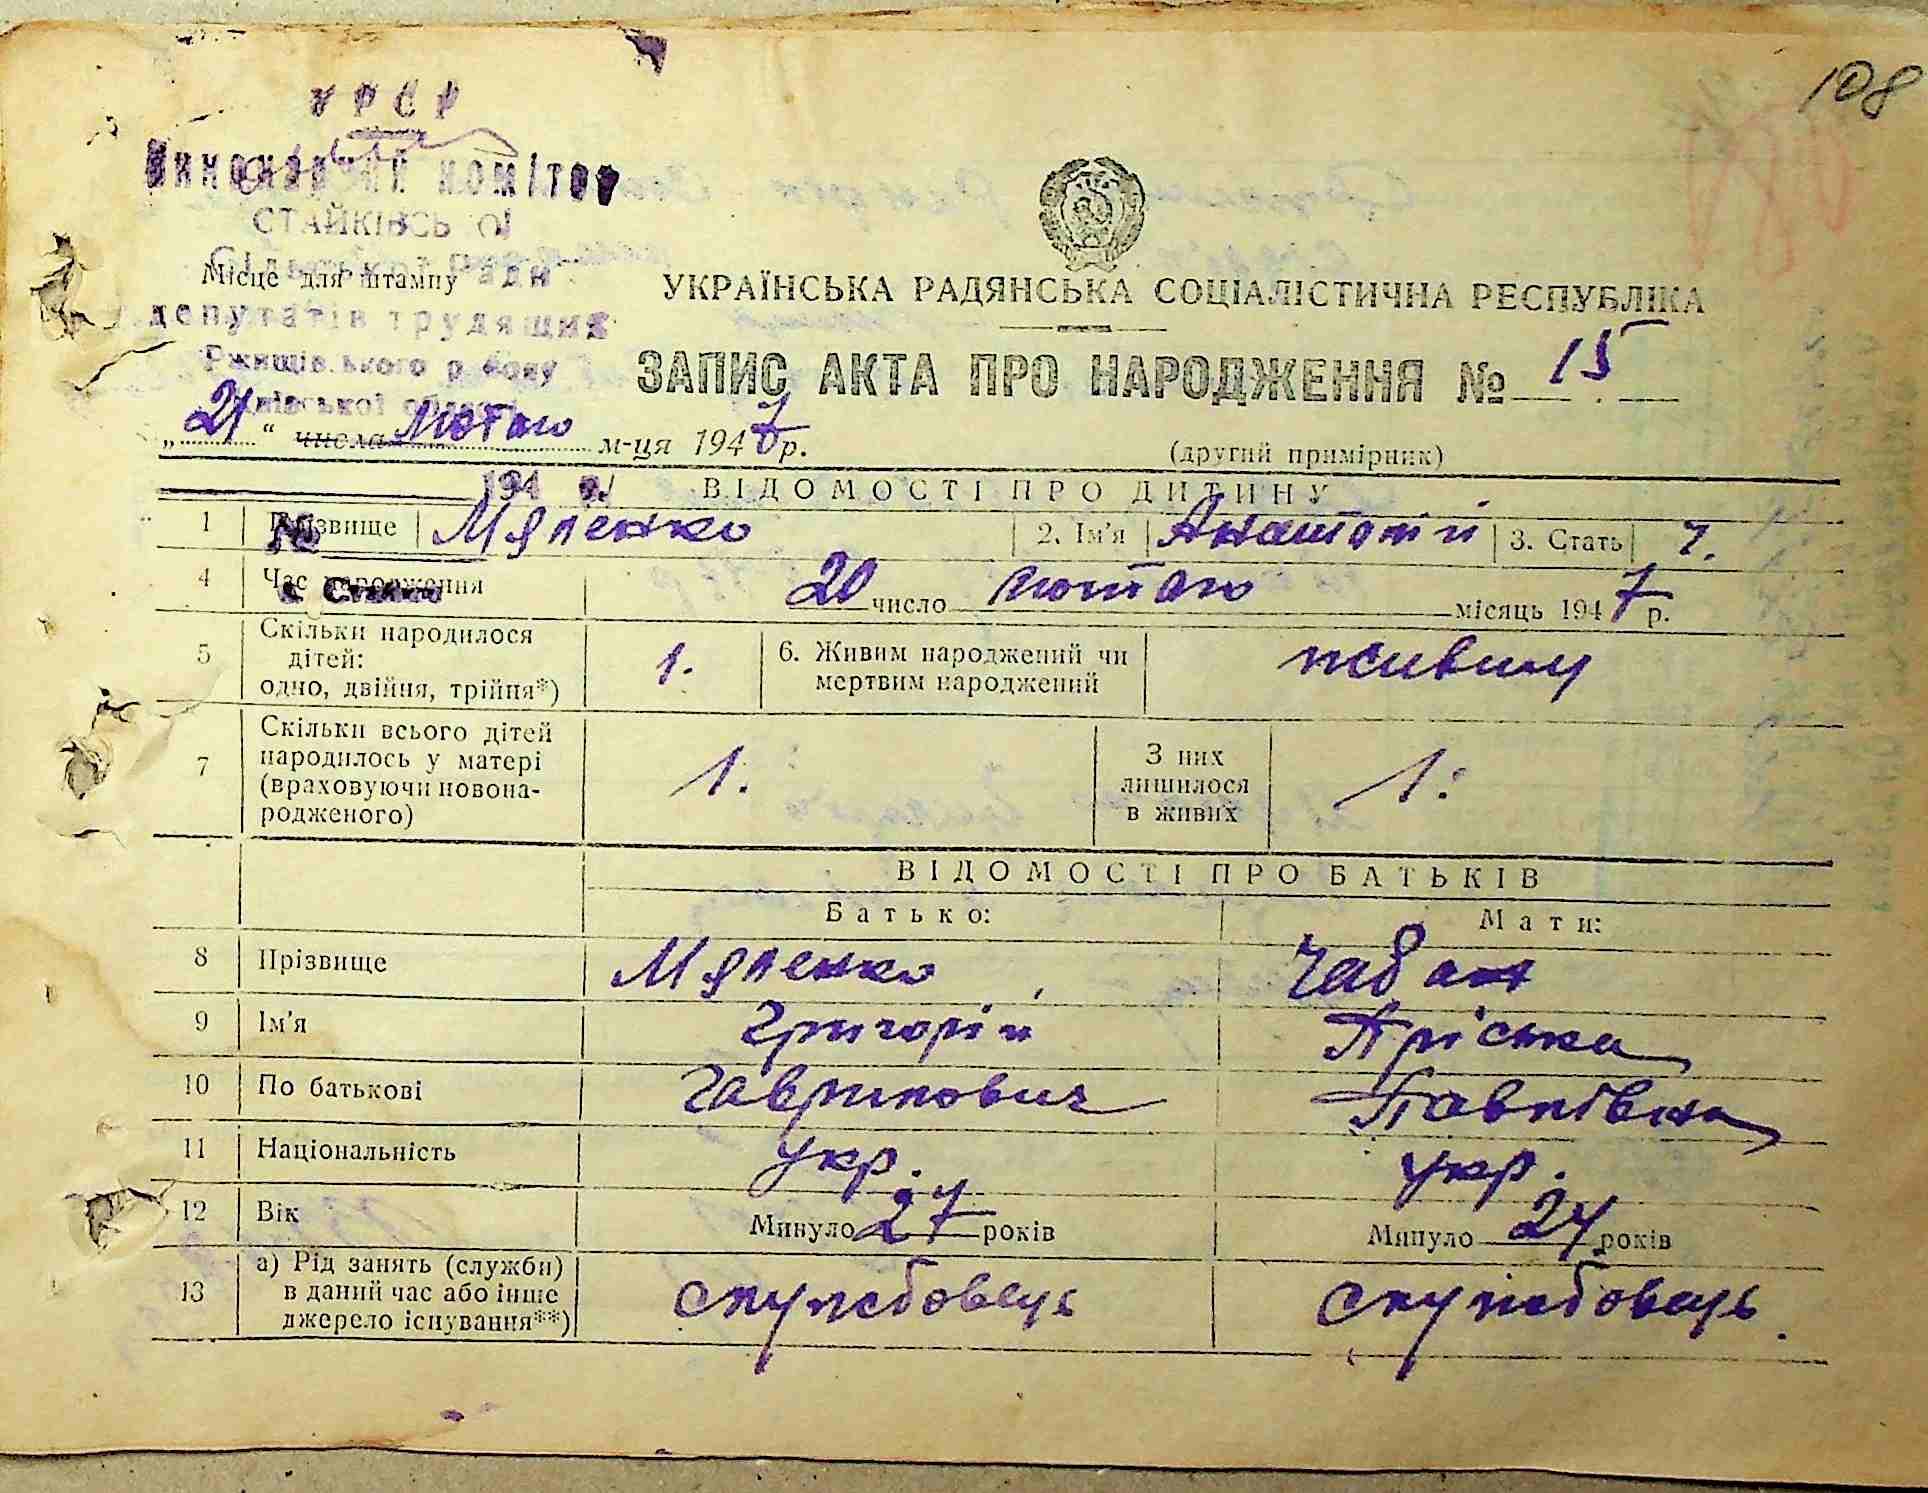 108
УРСР
Виконавчий комітет
СТАЙКІВСЬКОЇ
Сільської Ради
Місце для штампу
депутатів трудящих
Ржищівського району
Київської області
УКРАЇНСЬКА РАДЯНСЬКА СОЦІАЛІСТИЧНА РЕСПУБЛІКА
ЗАПИС АКТА ПРО НАРОДЖЕННЯ № 15
„21“ числа Лютого м-ця 1947 р.
(другий примірник)
194 р.
ВІДОМОСТІ ПРО ДИТИНУ
1 Прізвище Мяленко 2. Ім'я Анатолій 3. Стать ч.
№
4 Час народження 20 число лютого місяць 1947 р.
5 Скільки народилося дітей: одно, двійня, трійня*) 1. 6. Живим народжений чи мертвим народжений живим
7 Скільки всього дітей народилось у матері (враховуючи новонародженого) 1. З них лишилося в живих 1.
ВІДОМОСТІ ПРО БАТЬКІВ
Батько: Мати:
8 Прізвище Мяленко Чабан
9 Ім'я Григорій Пріська
10 По батькові Гаврилович Павлівна
11 Національність укр. укр.
12 Вік Минуло 27 років Минуло 24 років
13 а) Рід занять (служби) в даний час або інше джерело існування**) службовець службовець